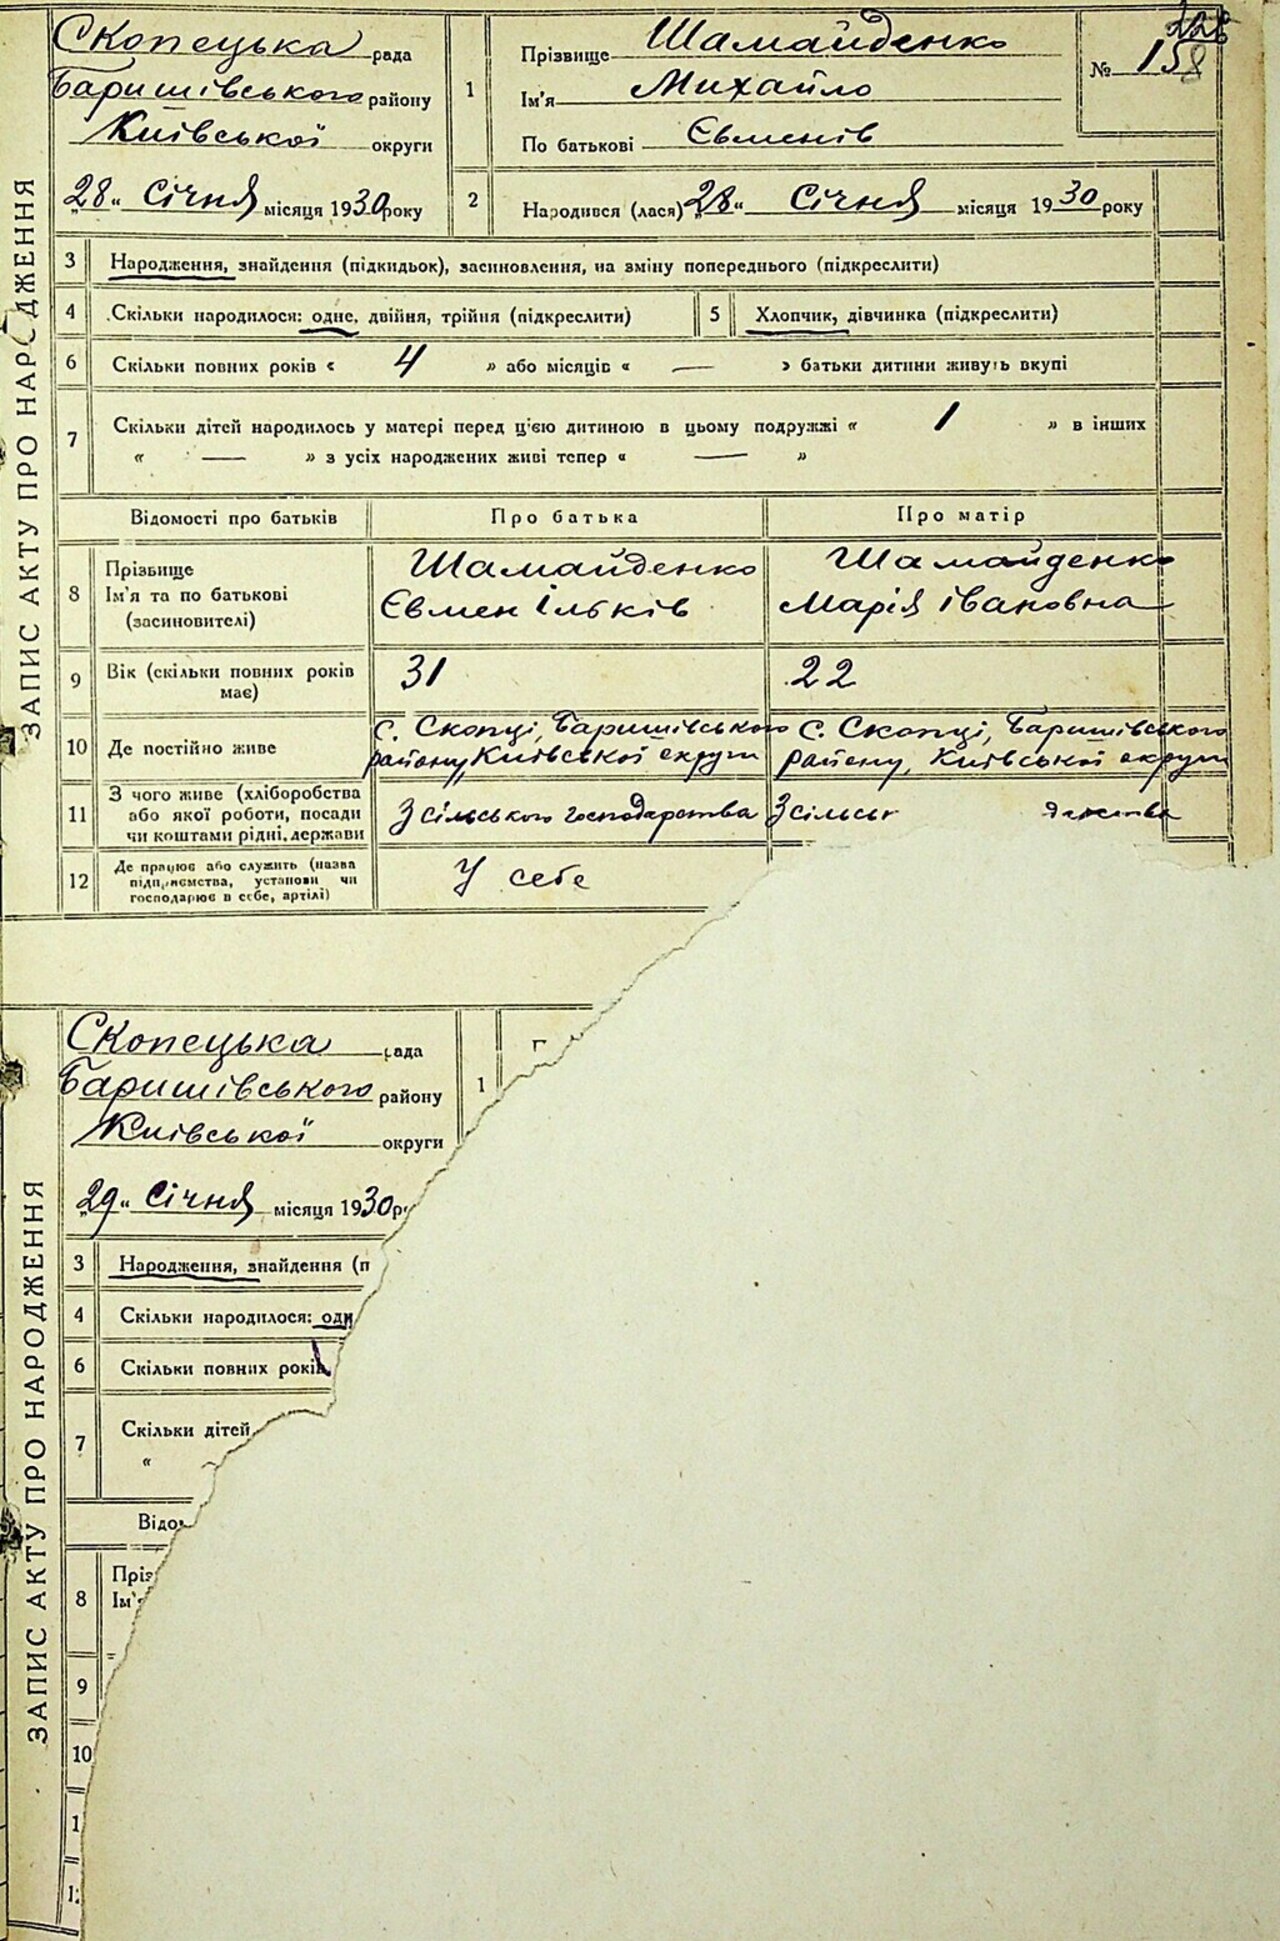 ЗАПИС АКТУ ПРО НАРОДЖЕННЯ
Скопецька рада
Баришівського району
Київської округи
„28“ Січня місяця 1930 року
1 Прізвище Шамайденко
Ім'я Михайло
По батькові Євменів
№ 158
2 Народився (лася) „28“ Січня місяця 1930 року
3 Народження, знайдення (підкидьок), засиновлення, на зміну попереднього (підкреслити)
4 Скільки народилося: одне, двійня, трійня (підкреслити) 5 Хлопчик, дівчинка (підкреслити)
6 Скільки повних років « 4 » або місяців « — » батьки дитини живуть вкупі
7 Скільки дітей народилось у матері перед цією дитиною в цьому подружжі « 1 » в інших
« — » з усіх народжених живі тепер « — »
Відомості про батьків Про батька Про матір
8 Прізвище Шамайденко Шамайденко
Ім'я та по батькові Євмен Ільків Марія Івановна
(засиновителі)
9 Вік (скільки повних років 31 22
має)
10 Де постійно живе с. Скопці, Баришівського с. Скопці, Баришівського
району, Київської округи району, Київської округи
11 З чого живе (хліборобства
або якої роботи, посади З сільського господарства З сільськ дарства
чи коштами рідні, держави
12 Де працює або служить (назва
підприємства, установи чи У себе
господарює в себе, артілі)
ЗАПИС АКТУ ПРО НАРОДЖЕННЯ
Скопецька рада
Баришівського району
Київської округи
„29“ Січня місяця 1930 р
1
3 Народження, знайдення (п
4 Скільки народилося: одн
6 Скільки повних років
7 Скільки дітей
«
Відо
8 Пріз
Ім'я
9
10
1
1